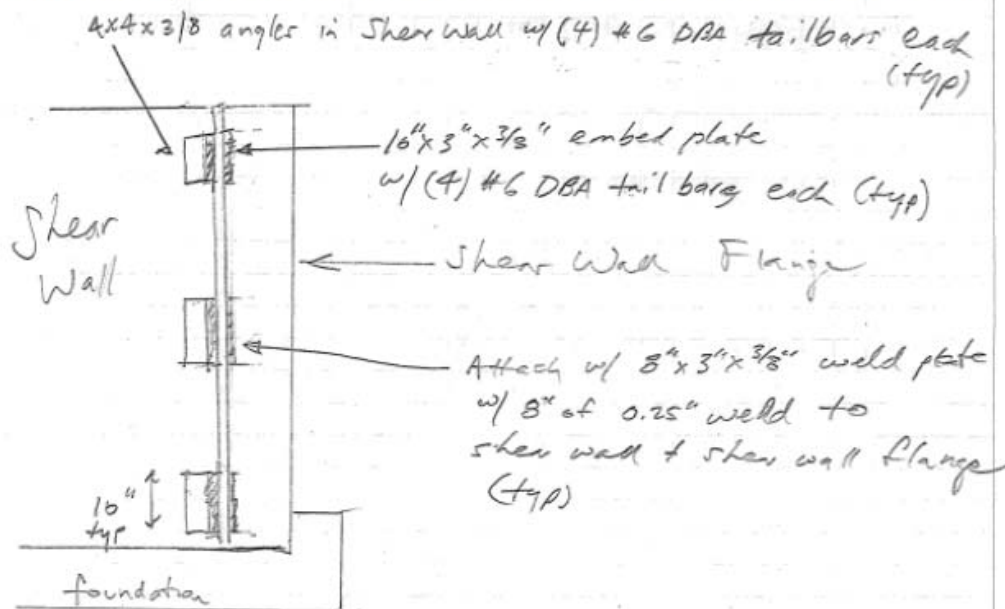 4x4x3/8 angles in Shear Wall w/(4) #6 DBA tailbars each
(typ)
10"x3"x3/8" embed plate
w/(4) #6 DBA tailbars each (typ)
Shear
Wall
Shear Wall Flange
Attach w/ 8"x3"x3/8" weld plate
w/ 8" of 0.25" weld to
shear wall & shear wall flange
(typ)
10"
typ
foundation